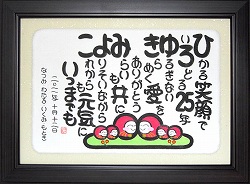 ひかる笑顔で
いろどる25年
ゆるぎない
きらめく愛を
ありがとう
みらいも共に
よりそいながら
これからも元気に
いつまでも
二〇二一年十月十二日
なつみ わたる いくみ もとき